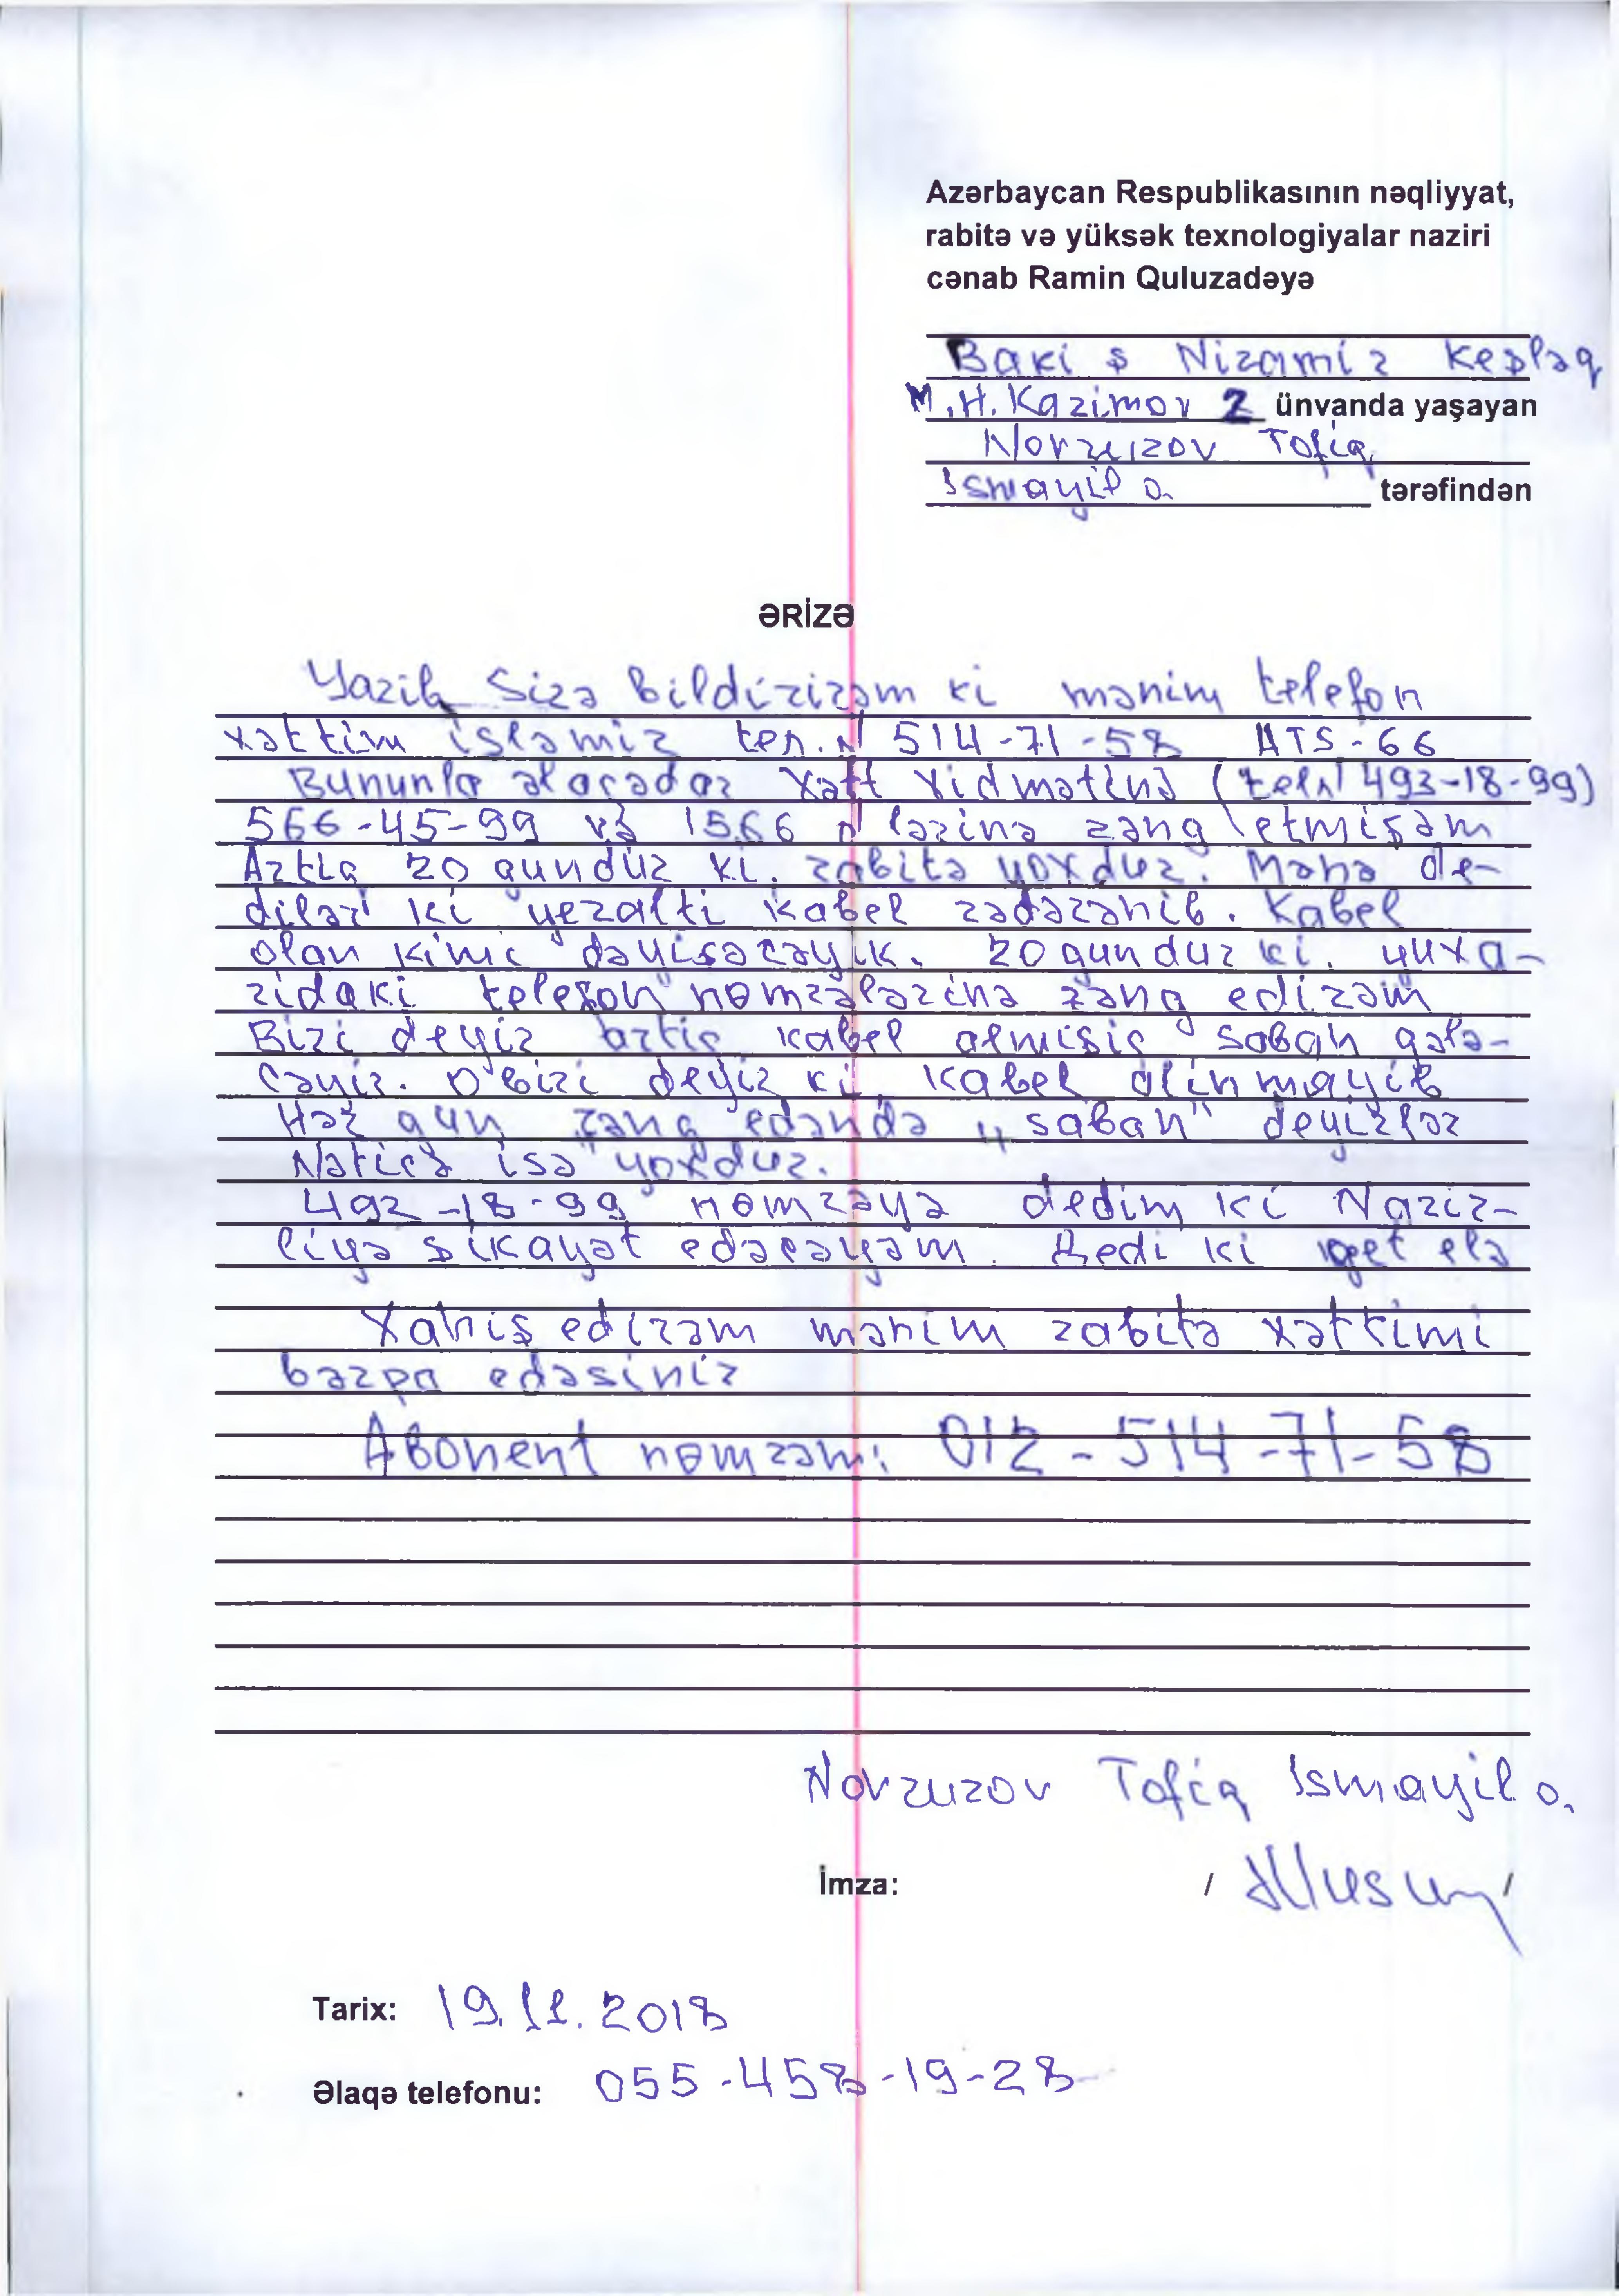 Azərbaycan Respublikasının nəqliyyat,
rabitə və yüksək texnologiyalar naziri
cənab Ramin Quluzadəyə
Baki ş Nizami r Keşləq
M.H.Kazimov 2 ünvanda yaşayan
Novruzov Tofiq
Ismayil o. tərəfindən
ƏRİZƏ
Yazib Sizə bildirirəm ki mənim telefon
xəttim işləmir 514-71-58 ATS-66
Bununla əlaqədar xətt xidmətinə (tel 493-18-99)
566-45-99 və 1566 lərinə zəng etmişəm
Artıq 20 gundur ki. rabitə yoxdur. Mənə de-
dilər ki yeralti kabel zədələnib. Kabel
olan kimi dəyişəcəyik. 20 gundur ki. yuxa-
ridaki telefon nömrələrinə zəng edirəm
Biri deyir artiq kabel almişiq sabah gələ-
cəyik. O biri deyir ki kabel alinmayib
Hər gun zəng edəndə "sabah" deyirlər
Nəticə isə yoxdur.
492-18-99 nömrəyə dedim ki Nazir-
liyə şikayət edəcəyəm. Dedi ki get elə
Xahiş edirəm mənim rabitə xəttimi
bərpa edəsiniz
Abonent nömrəm: 012-514-71-58
Novruzov Tofiq Ismayil o.
İmza: / /
Tarix: 19.11.2018
Əlaqə telefonu: 055-458-19-28